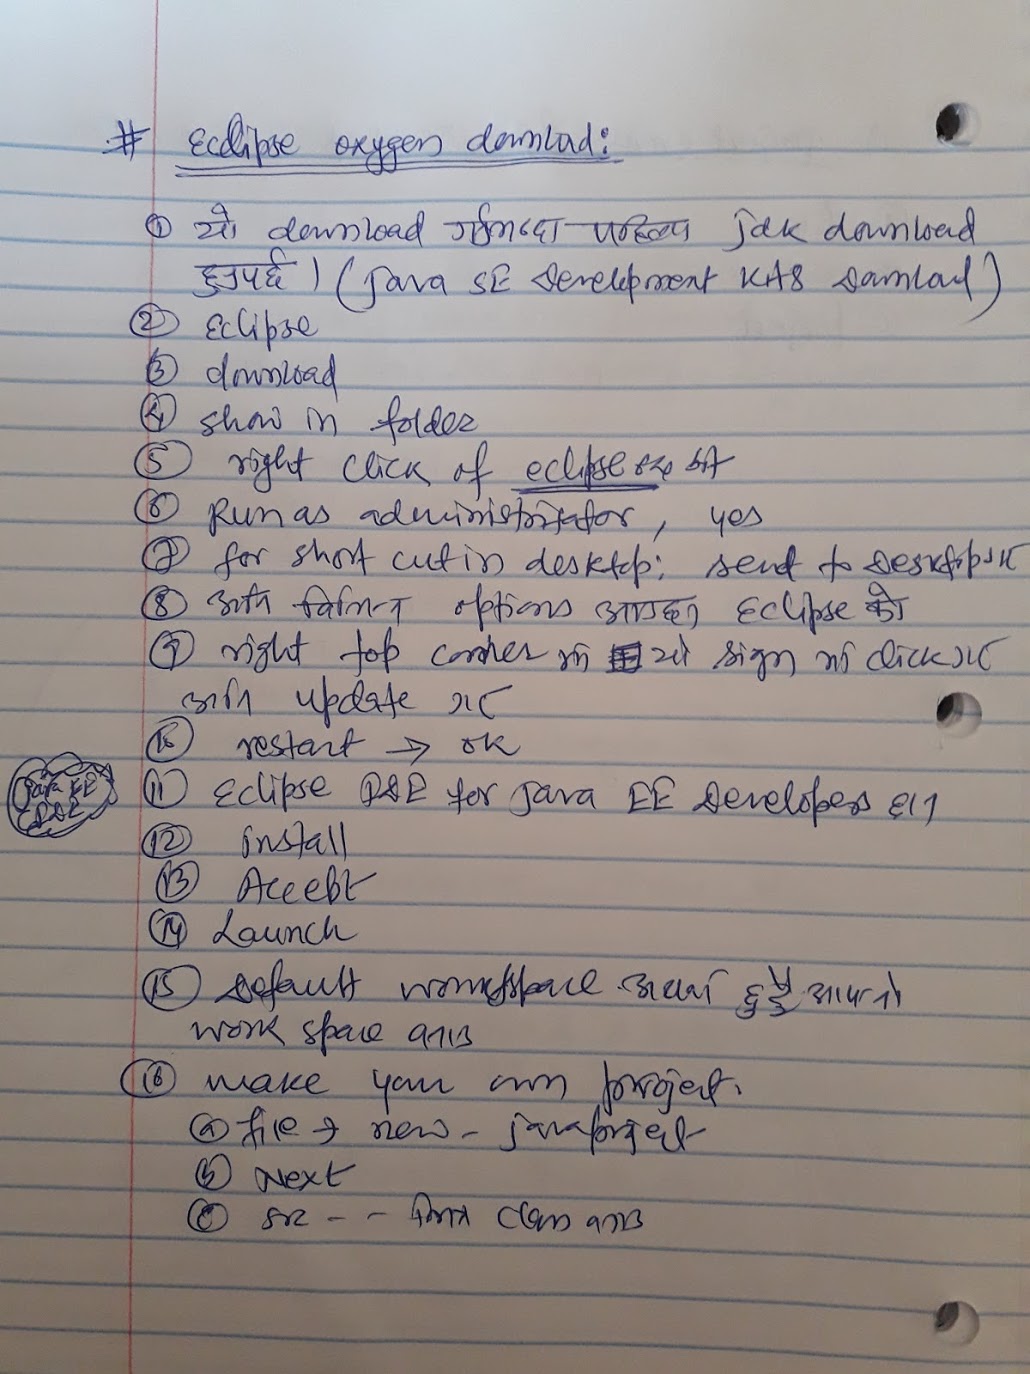 # Ecclipse oxygen download:
① यो download गर्नुभन्दा पहिला jdk download
हुनुपर्छ । (Java SE Development Kit 8 Download)
② Eclipse
③ download
④ show in folder
⑤ right click of eclipse
⑥ Run as administrator, yes
⑦ for short cut in desktop: send to Desktop
⑧ अनि विभिन्न options आउँछन् Eclipse को
⑨ right top corner मा यो साइन मा click गर्ने
अनि update गर्ने
⑩ restart → ok
Java EE
IDE
⑪ Eclipse IDE for Java EE Developers
⑫ install
⑬ Accebt
⑭ Launch
⑮ Default workspace अथवा आफ्नो
work space बनाउ
⑯ make your own project.
ⓐ file → new - java project
ⓑ Next
ⓒ src - - भित्र class बनाउ